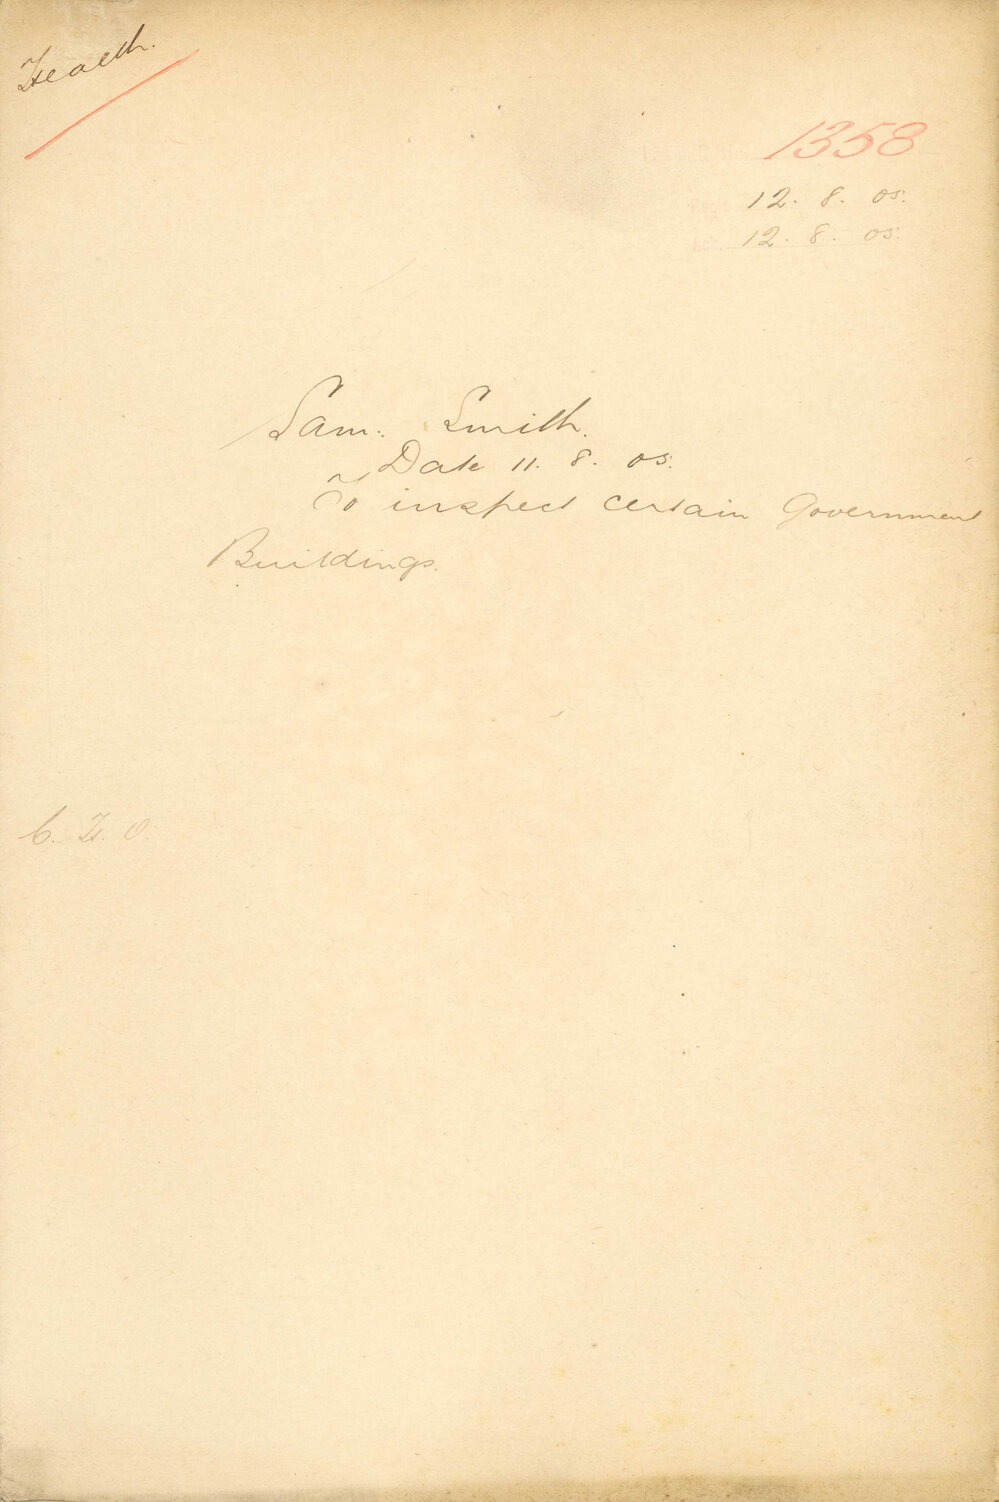 Health.
1358
12. 8. 05.
12. 8. 05.
Sam. Smith.
Date 11. 8. 05.
To inspect certain Government
Buildings.
C. H. O.